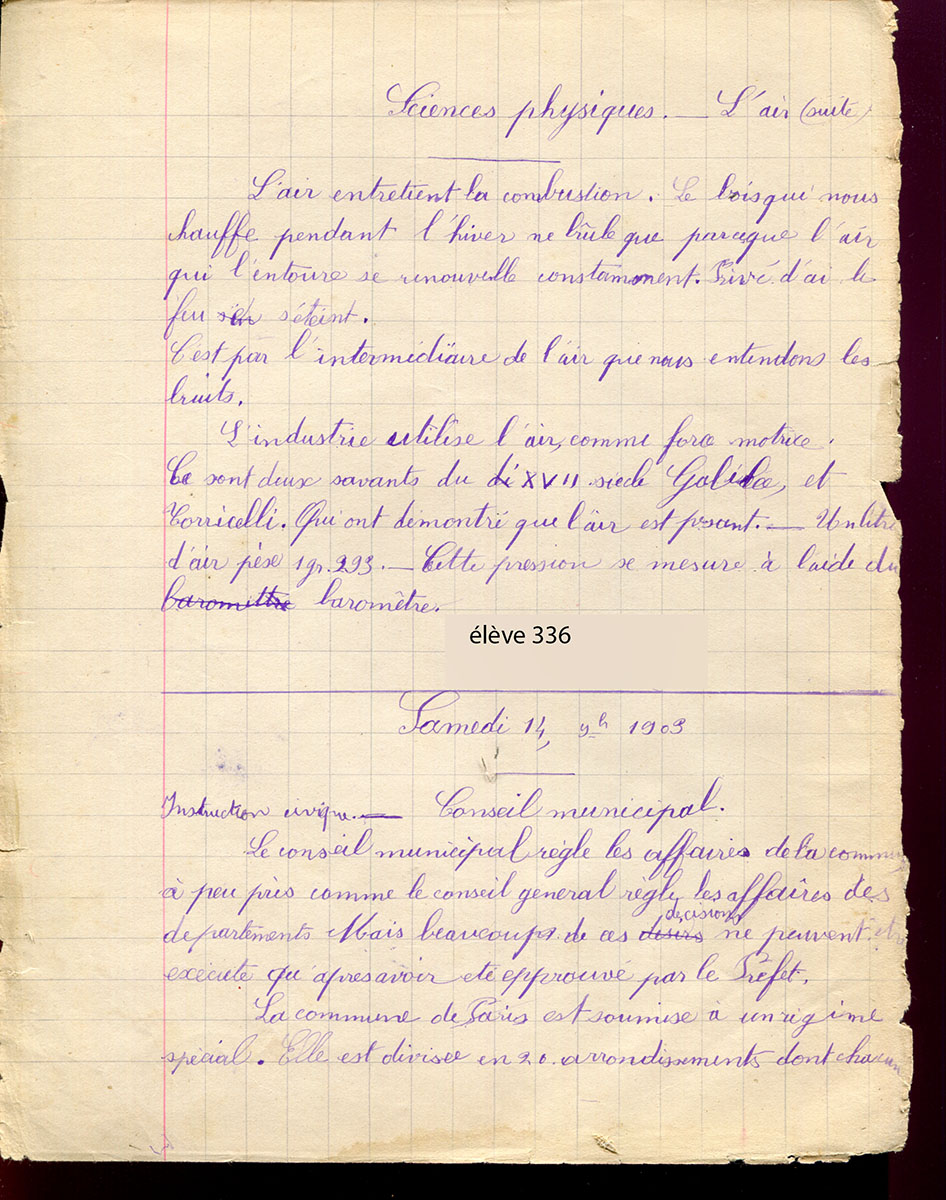 Sciences physiques. — L'air (suite)
L'air entretient la combustion. Le bois qui nous
chauffe pendant l'hiver ne brûle que parceque l'air
qui l'entoure se renouvelle constamment. Privé d'ai le
feu s'en s'éteint.
C'est par l'intermédiaire de l'air que nous entendons les
bruits.
L'industrie utilise l'air, comme force motrice.
Ce sont deux savants du di XVII siècle Galilée, et
Torricelli. Qui ont démontré que l'air est pesant. — Un litre
d'air pèse 1gr.293. — Cette pression se mesure à l'aide du
baromettre baromêtre.
élève 336
Samedi 14, 9bre 1903
Instruction civique. — Conseil municipal.
Le conseil municipal règle les affaires de la commune
à peu près comme le conseil general règle les affaires des
departements Mais beaucoup de ces desirs decisions ne peuvent être
exécuté qu'après avoir eté epprouvé par le Préfet.
La commune de Paris est soumise à un régime
spécial. Elle est divisee en 20. arrondissements dont chacun